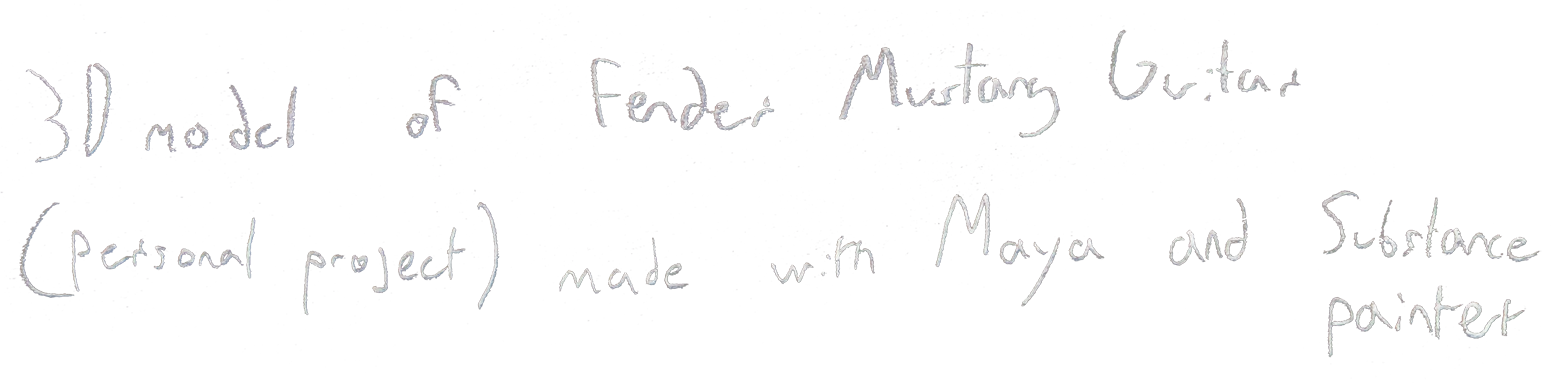 3D model of Fender Mustang Guitar
(personal project) made with Maya and Substance
painter